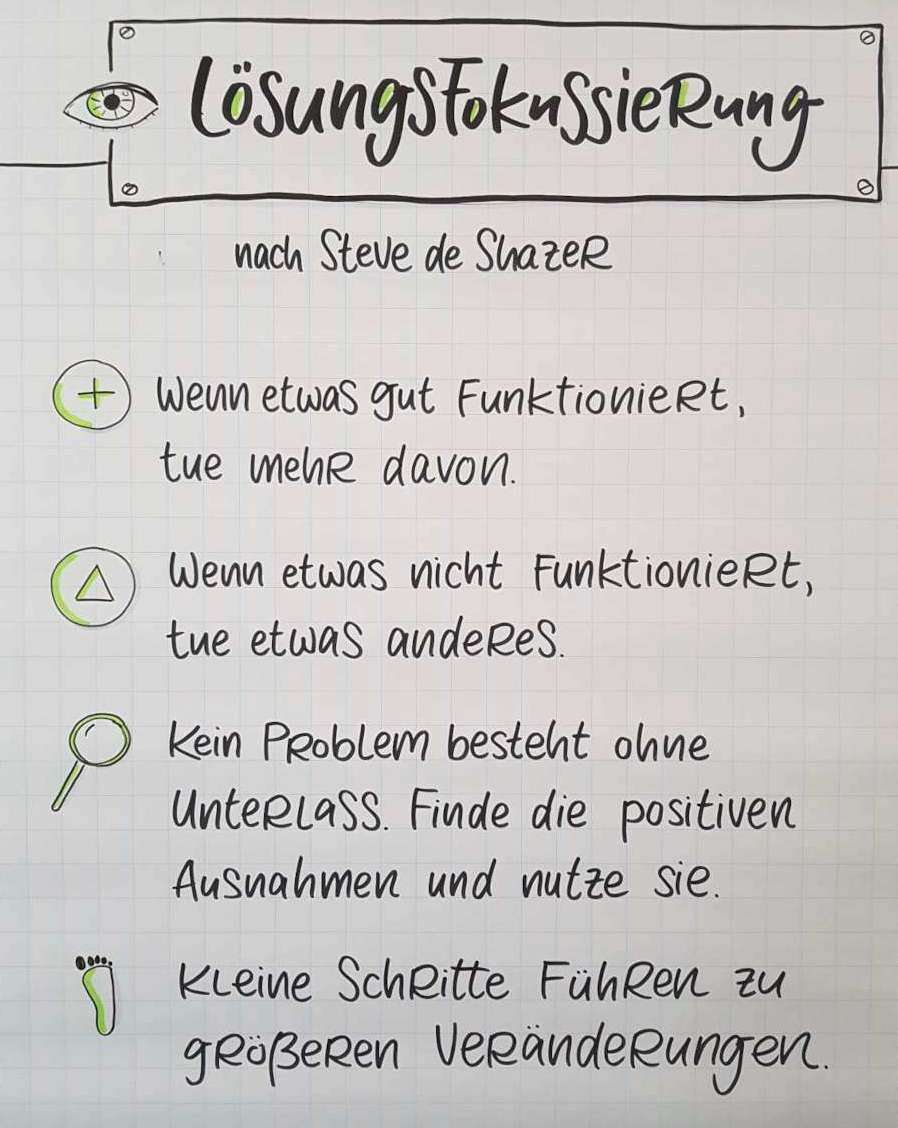 Lösungsfokussierung
nach Steve de Shazer
Wenn etwas gut funktioniert,
tue mehr davon.
Wenn etwas nicht funktioniert,
tue etwas anderes.
Kein Problem besteht ohne
Unterlass. Finde die positiven
Ausnahmen und nutze sie.
Kleine Schritte führen zu
größeren Veränderungen.